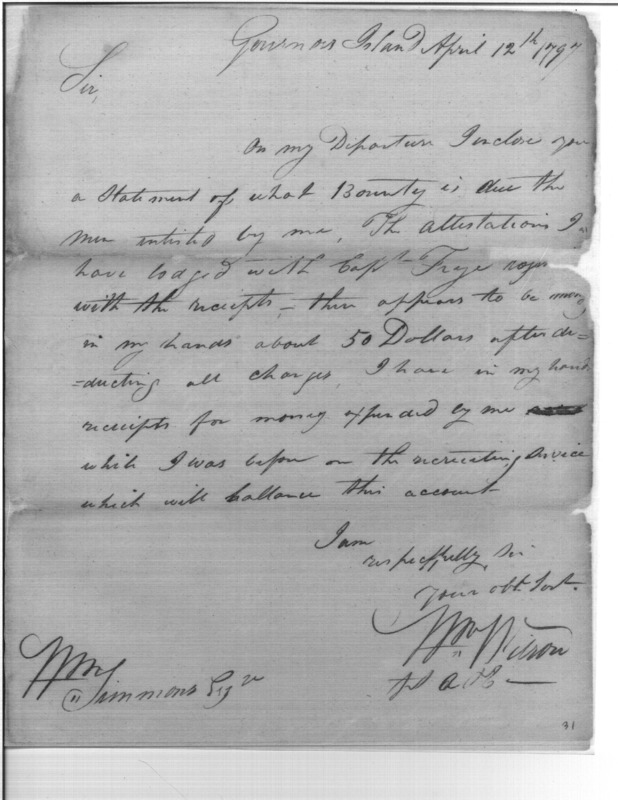 Governors Island April 12th 1797
Sir,
On my Departure I inclose you
a Statement of what Bounty is due the
men inlisted by me, The attestations I
have lodged with Capt Frye
with the receipts, – there appears to be money
in my hands about 50 Dollars after de=
=ducting all charges, I have in my hands
receipts for money expended by me
which I was before on the recruiting Service
which will ballance this account
I am
respectfully, Sir
your obt. Sert.
Wm Wilson
Wm Simmons Esqr
31